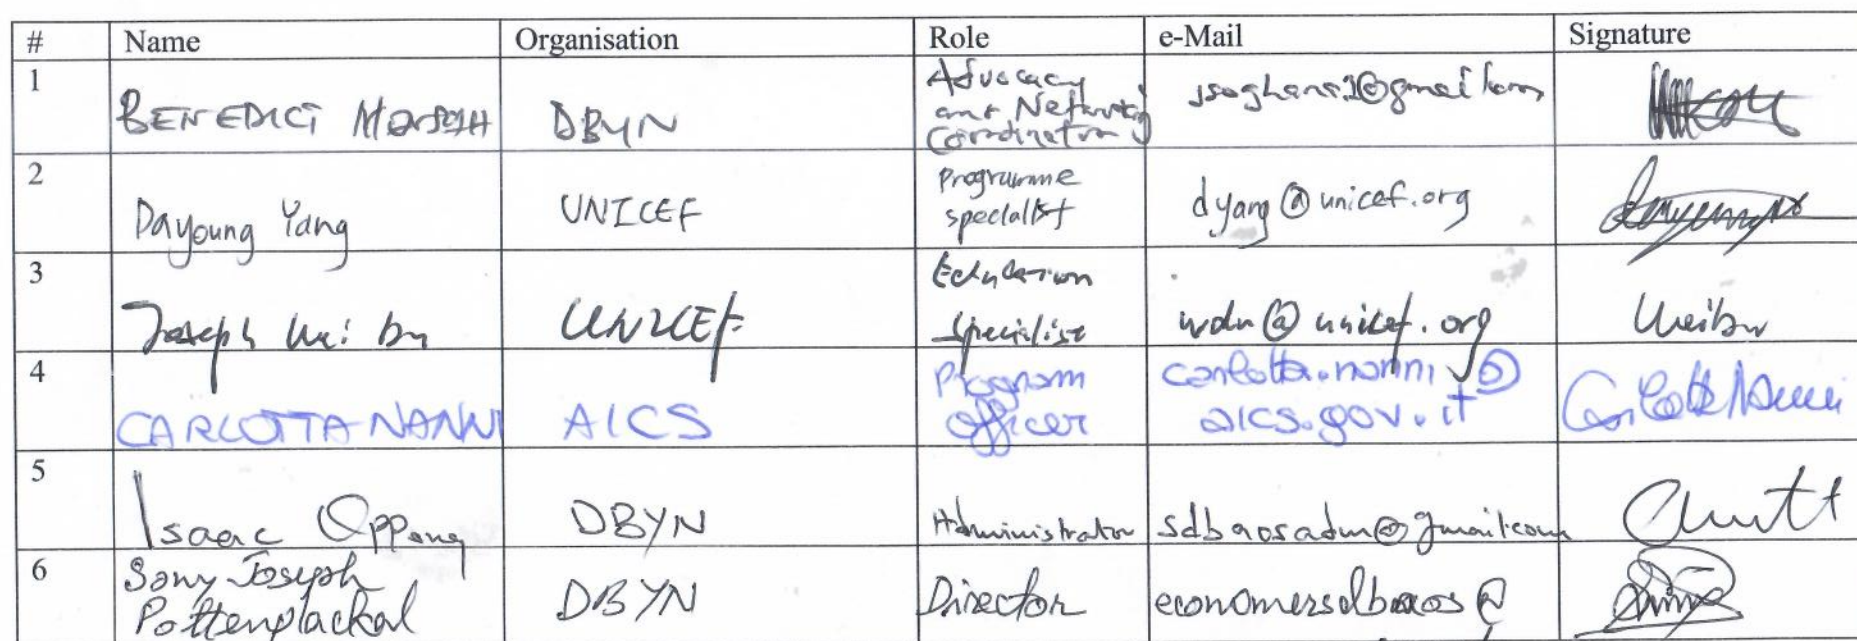 # Name Organisation Role e-Mail Signature
1 BENEDICT DBYN Advocacy and Networking Coordinator
2 Dayoung Yang UNICEF Programme specialist dyang@unicef.org
3 Joseph UNICEF Education Specialist wdu@unicef.org Weibu
4 CARLOTTA NANNI AICS Program Officer carlotta.nanni@
aics.gov.it Carlotta Nanni
5 Isaac Oppong DBYN Administrator sdbaosadm@gmail.com
6 Sony Joseph
Pottenplackal DBYN Director